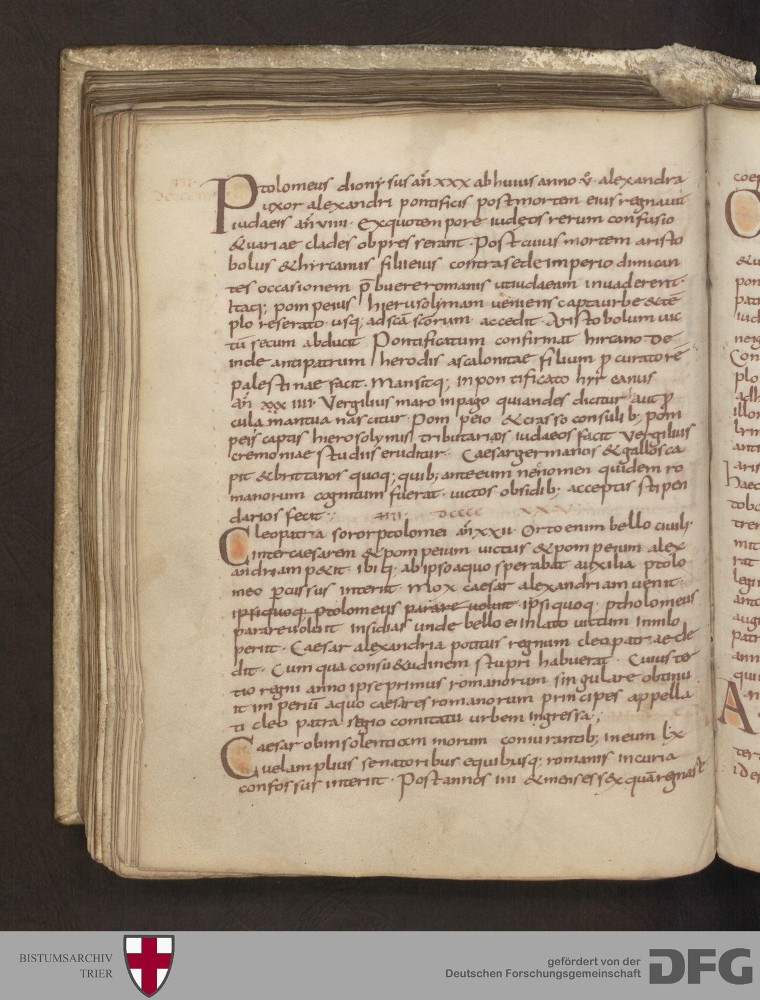 Ptolomeus dionysus añ xxx ab huius anno v̊ alexandra
uxor alexandri pontificis post mortem eius regnauit
iudaeis añ viiii · Ex quo tempore iudeos rerum confusio
& uariae clades obpresserant · Post cuius mortem aristo
bolus & hircanus filii eius contra se de imperio dimican
tes occasionem p̄buere romanis ut iudaeam inuaderent ·
Itaq; pompeius hierusolymam ueniens capta urbe & tē
plo reserato usq; ad scā scorum accedit · Aristobolum uic
tū secum abducit Pontificatum confirmat hircano De
inde antipatrum herodis ascalonitae filium p curatorē
palestinae facit · Mansitq; in pontificato hyrcanus
añ xxx iiii · Vergilius maro in pago qui andes dicitur aut p
cula mantua nascitur · Pompeio & crasso consulib; pom
peis captis hierosolymis tributarios iudaeos facit Vergilius
cremoniae studiis eruditur · Caesar germanos & gallos ca
pit & brittanos quoq; quib; ante eum ne nomen quidem ro
manorum cognitum fuerat · uictos obsidib; acceptis stipen
darios fecit ·
Cleopatra soror ptolomei añ xxii · Orto enim bello ciuili ·
inter caesarem & pompeium uictus & pompeium alex
andriam petit · ibiq; ab ipso a quo sperabat auxilia ptolo
meo pcussus interiit · Mox caesar alexandriam uenit ·
ipsi quoq; ptolomeus parare uoluit · ipsi quoq; ptholomeus
parare uoluit insidias unde bello ei inlato uictum in nilo
periit · Caesar alexandria potitus regnum cleopatrae de
dit · Cum qua consu&udinem stupri habuerat · Cuius ter
tio regni anno ipse primus romanorum singulare obtinu
it imperiū a quo caesares romanorum principes appella
ti cleopatra regio comitatu urbem ingressa;
Caesar ob insolentiam morum coniurantib; in eum lx
uel amplius senatoribus equibusq; romanis in curia
confossus interiit · Post annos iiii & menses sex quā regnast
BISTUMSARCHIV
TRIER
gefördert von der
Deutschen Forschungsgemeinschaft
DFG